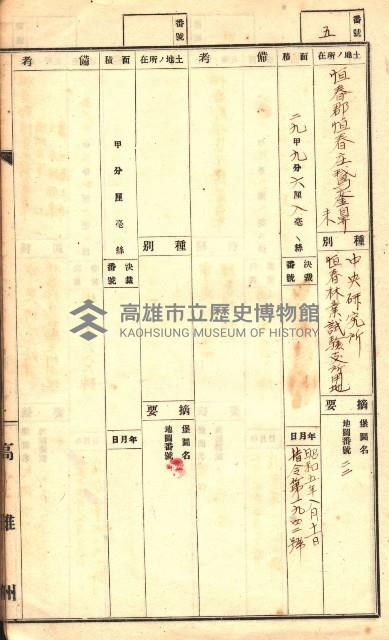 番號
五
番號
土地ノ所在
恒春郡恒春庄鵞鑾鼻
種別
中央研究所
恒春林業試驗支所用地
摘要
堡圖名
地圖番號
二二
面積
二九甲九分六厘八毫、絲
決裁番號
年月日
昭和五年八月十一日
指令第一九四二號
備考
土地ノ所在
種別
摘要
堡圖名
地圖番號
面積
甲分厘毫絲
決裁番號
年月日
備考
高雄州
高雄市立歷史博物館
KAOHSIUNG MUSEUM OF HISTORY